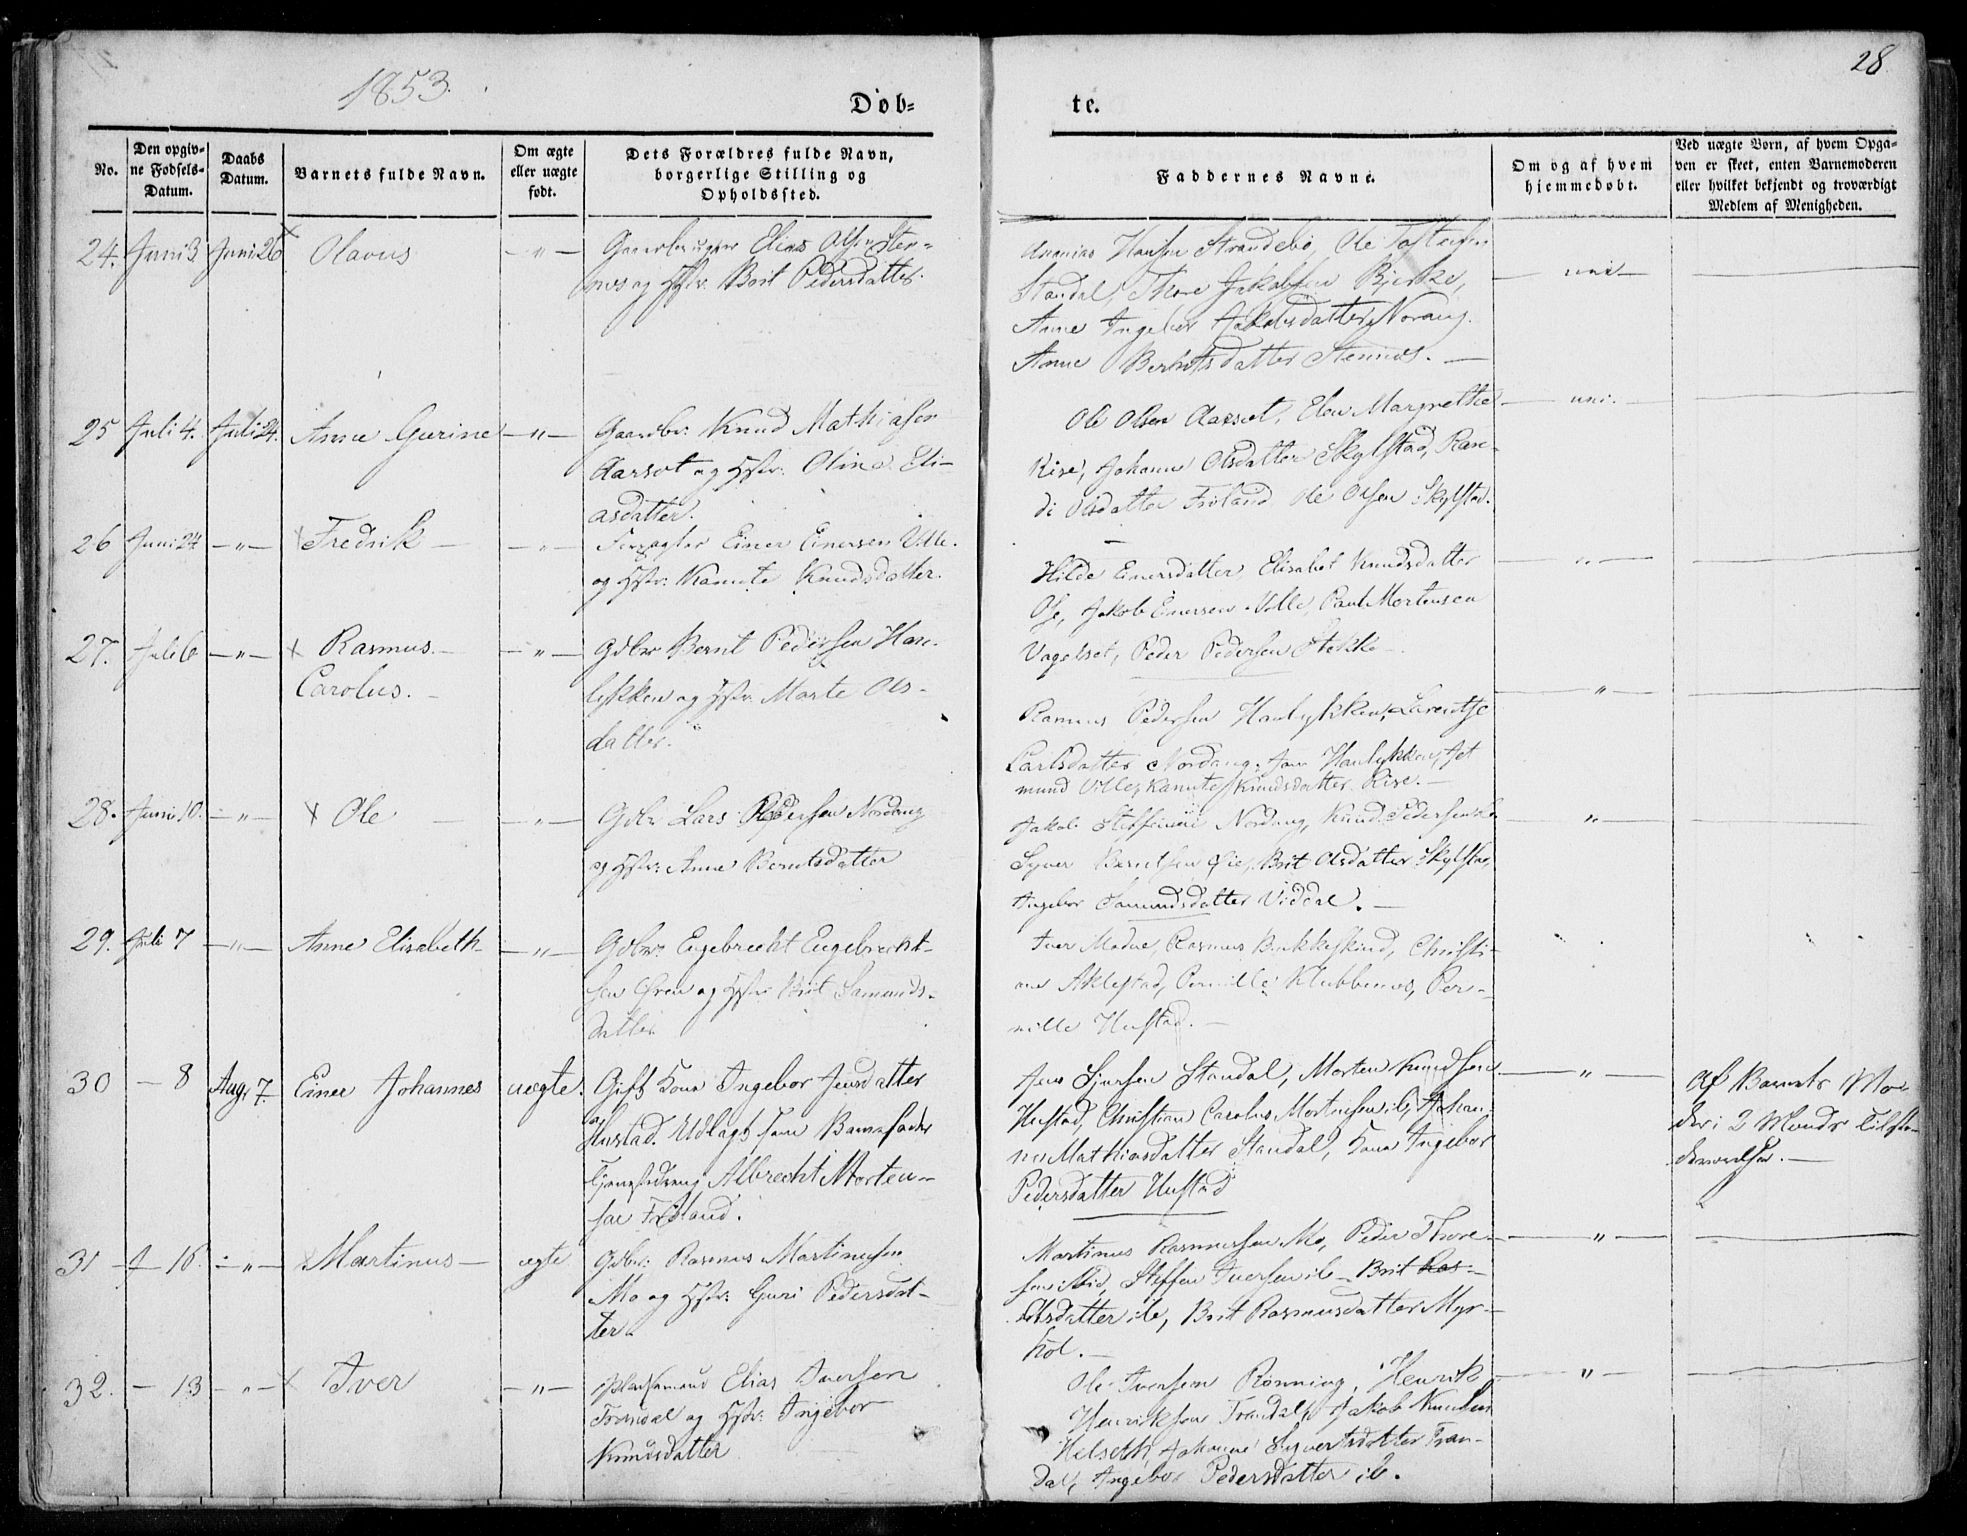 1853.
28
Døb-
te.
No.
Den opgiv-
ne Fødsels-
Datum.
Daabs
Datum.
Barnets fulde Navn.
Om ægte
eller uægte
født.
Dets Forældres fulde Navn,
borgerlige Stilling og
Opholdssted.
Faddernes Navne.
Om og af hvem
hjemmedøbt.
Ved uægte Børn, af hvem Opga-
ven er skeet, enten Barnemoderen
eller hvilket bekjendt og troværdigt
Medlem af Menigheden.
24. Juni 3 Juni 26 Olavus — „ — Elias Olsen Sten-
næs og Hstr. Brit Pedersdatter.
Ananias Hansen Strandebø, Ole Tostensen
Standal, Thore Jakobsen Bjerke,
Anne Ingebor Jakobsdatter Norang.
Anne Berntsdatter Stennæs. —
— uni —
25 Juli 4. Juli 24. Anne Gurine — „ — Gaardbr: Knud Mathiasen
Aarset og Hstr. Oline Eli-
asdatter.
Ole Olsen Aarset, Elen Margrethe
Rise, Johanne Olsdatter Skylstad, Ran-
di Olsdatter Froland Ole Olsen Skylstad.
— uni. —
26 Juni 24 — „ — × Fredrik — — „ — Einer Einersen Ville.
og Hstr: Kanute Knudsdatter.
Hilde Einersdatter, Elisabet Knudsdatter
Ose, Jakob Einersen Ville, Paul Mortensen
Vagelset, Peder Pedersen Stekke —
— „ —
27. Juli 6 — „ — × Rasmus. —
Carolus. —
— „ — Gdbr Bernt Pedersen Han-
lykken og Hstr. Marte Ols-
datter.
Rasmus Pedersen Hanlykken, Larentse
Carlsdatter Nordang, Hanlykken,
mund Ville, Kanute Knudsdatter Rise. —
— „ —
28. Juni 10. — „ — × Ole — — „ — Gdbr Lars Pedersen Nordang
og Hstr: Anne Berntsdatter
Jakob Steffensen Nordang, Knud Pedersen
Syver Berntsen Øie, Brit Olsdatter Skylstad,
Ingebor Samundsdatter Viddal. —
— „ —
29. Juli 7 — „ — Anne Elisabeth — „ — Gdbr: Engebrecht Engebrecht-
sen Øren og Hstr Brit Samunds-
datter
Iver Rasmus Bukkeskind, Christi-
ane Aklestad, Pernille Klubbenes, Per-
nille Hustad. —
30 — 8 Aug. 7. Einer Johannes uægte. Gift Kone Ingebor Jensdatter
Hustad. Udlagt som Barnefader
Albrecht Morten-
sen Frøland.
Jens Sjursen Standal, Morten Knudsen
Hustad, Christian Carolus Mortensen ib, Johan-
ne Mathiasdatter Standal, Kone Ingebor
Pedersdatter Hustad
— „ —
Af Barnets Mo-
der i 2
31 — 16. — „ — × Martinus — ægte Gdbr: Rasmus Martinusen
Mo og Hstr: Guri Pedersdat-
ter.
Martinus Rasmussen Mo, Peder Thore-
sen Steffen Iversen ib — Brit Ras-
Olsdatter ib, Brit Rasmusdatter Myr-
hol. —
— „ —
32. — 13 — „ — × Iver — „ — Pladsemand Elias Iversen
Trandal og Hstr: Ingebor
Knudsdatter
Ole Iversen Rønning, Henrik
Henriksen Trandal, Jakob Knudsen
Helseth, Johanne Syvertsdatter Tran-
dal, Ingebor Pedersdatter ib.
— „ —